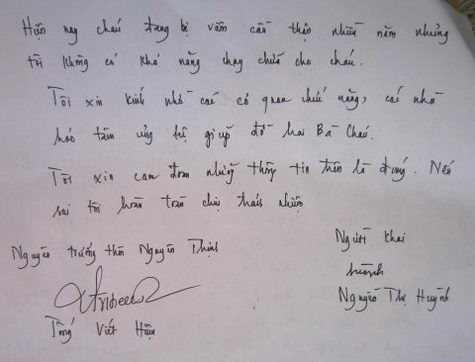 Hiện nay cháu đang bị viêm cầu thận nhiều năm nhưng
tôi không có khả năng chạy chữa cho cháu.
Tôi xin kính nhờ các cơ quan chức năng, các nhà
hảo tâm ủng hộ giúp đỡ hai Bà Cháu.
Tôi xin cam đoan những thông tin trên là đúng. Nếu
sai tôi hoàn toàn chịu trách nhiệm
Nguyên trưởng thôn Nguyên Thịnh
Người khai
Huỳnh
Nguyễn Thị Huỳnh
Viết